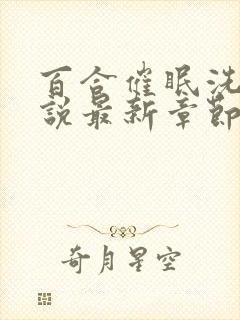 百合催眠洗
說最新章節
奇月星空